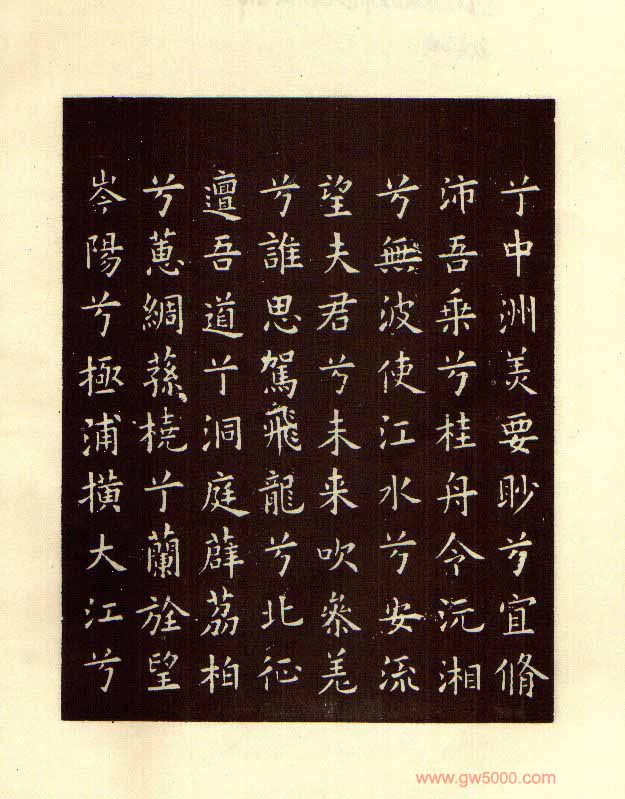 兮中洲美要眇兮宜脩
沛吾乗兮桂舟令沅湘
兮無波使江水兮安流
望夫君兮未来吹参差
兮誰思駕飛龍兮北征
邅吾道兮洞庭薜荔柏
兮蕙綢蓀橈兮蘭旌望
岑陽兮極浦横大江兮
www.gw5000.com